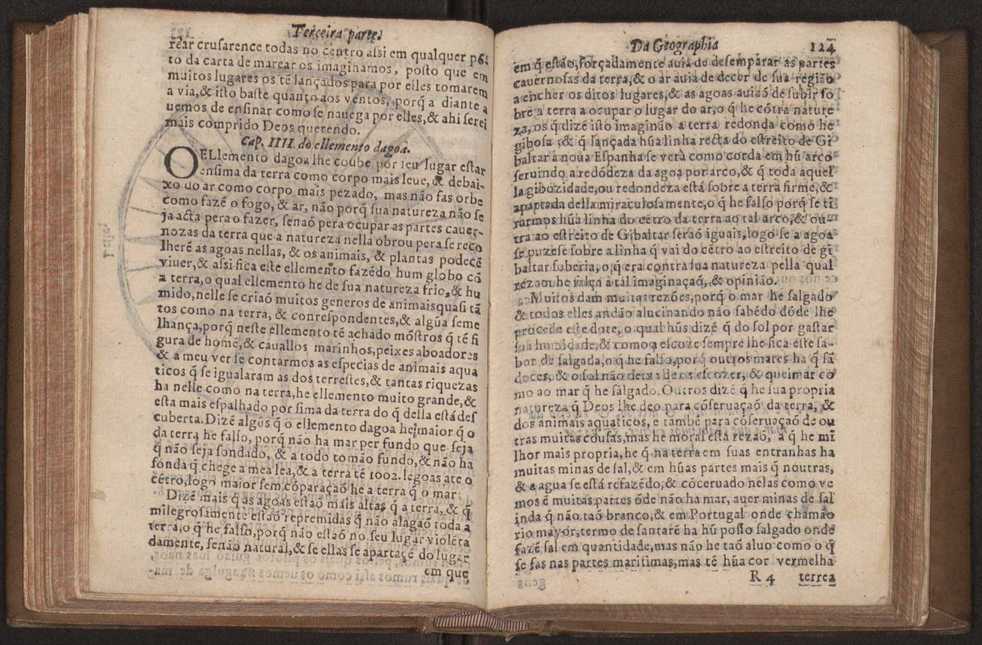 Terceira parte.
rear crusarence todas no centro assi em qualquer põ
to da carta de marear os imaginamos, posto que em
muitos lugares os tẽ lançados para por elles tomarem
a via,& isto baste quanto aos ventos, porq̃ a diante a
uemos de ensinar como se nauega por elles,& ahi serei
mais comprido Deos querendo.
Cap. IIII. do ellemento dagoa.
OELlemento dagoa lhe coube por seu lugar estar
ensima da terra como corpo mais leue, & debai-
xo do ar como corpo mais pezado, mas não fas orbe
como fazẽ o fogo, & ar, não porq̃ sua natureza não se
ja acta pera o fazer, senaõ pera ocupar as partes cauer-
nozas da terra que a natureza nella obrou pera se reco
lherẽ as agoas nellas, & os animais, & plantas podecẽ
viuer,& assi fica este ellemento fazẽdo hum globo cõ
a terra,o qual ellemento he de sua natureza frio,& hu
mido,nelle se criaõ muitos generos de animais quasi tã
tos como na terra, & conrespondentes,& algũa seme
lhança,porq̃ neste ellemento tẽ achado mõstros q̃ tẽ fi
gura de homẽ,& cauallos marinhos,peixes aboadores
& a meu ver se contarmos as especias de animais aqua
ticos q̃ se igualaram as dos terrestes,& tantas riquezas
ha nelle como na terra,he ellemento muito grande,&
esta mais espalhado por sima da terra do q̃ della está des
cuberta.Dizẽ algũs q̃ o ellemento dagoa he maior q̃ o
da terra he falso, porq̃ não ha mar per fundo que seja
q̃ não seja sondado, & a todo tomão fundo,& não ha
sonda q̃ chege a mea lea,& a terra tẽ 1002. legoas ate o
cẽtro,logo maior sem cõparação he a terra q̃ o mar.
Dizẽ mais q̃ as agoas estaõ mais altas q̃ a terra,& q̃
milegrosamente estaõ repremidas q̃ não alagaõ toda a
terra,o q̃ he falso,porq̃ não estaõ no seu lugar violẽta
damente, senão natural,& se ellas se apartacẽ do lugar
em que
Da Geographia 124
em q̃ estão,forçadamente auia de desemparar as partes
cauernosas da terra,& o ar auia de decer de sua região
a encher os ditos lugares,& as agoas auiaõ de subir so
bre a terra a ocupar o lugar do ar,o q̃ he cõtra nature
za, os q̃ dizẽ isto imaginão a terra redonda como he
gibosa ,& q̃ lançada hũa linha recta do estreito de Gi
baltar à noua Espanha se verà como corda em hũ arco
seruindo a redõdeza da agoa por arco,& q̃ toda aquel
la gibozidade,ou redondeza està sobre a terra firme,&
apartada della miraculosamente,o q̃ he falso porq̃ se ti
rarmos hũa linha do cẽtro da terra ao tal arco,& ou-
tra ao estreito de Gibaltar seraõ iguais,logo se a agoa
se puzese sobre a linha q̃ vai do cẽtro ao estreito de gi
baltar suberia,o q̃ era contra sua natureza pella qual
rezaõ he falça a tal imaginaçaõ,& opinião.
Muitos dam muitas rezões,porq̃ o mar he salgado
& todos elles andão alucinando não sabẽdo dõde lhe
procede este dote, o qual hũs dizẽ q̃ do sol por gastar
sua humidade,& como a elcoze sempre lhe fica este sa-
bor de salgada,o q̃ he falso,porq̃ outros mares ha q̃ sã
doces,& o sol não deixa de os escozer, & queimar co
mo ao mar q̃ he salgado.Outros dizẽ q̃ he sua propria
natureza q̃ Deos lhe deo para cõseruaçaõ da terra, &
dos animais aquaticos, e tambẽ para cõseruaçaõ de ou
tras muitas cousas,mas he moral esta rezão, a q̃ he mi
lhor mais propria,he q̃ na terra em suas entranhas ha
muitas minas de sal,& em hũas partes mais q̃ noutras,
& a agua se està refazẽdo,& cõceruado nelas como ve
mos ẽ muitas partes õde não ha mar, auer minas de sal
inda q̃ não taõ branco,& em Portugal onde chamão
rio mayor,termo de santarẽ ha hũ posso salgado onde
fazẽ sal em quantidade,mas não he taõ aluo como o q̃
se fas nas partes maritimas,mas tẽ hũa cor vermelha
R 4 terrea